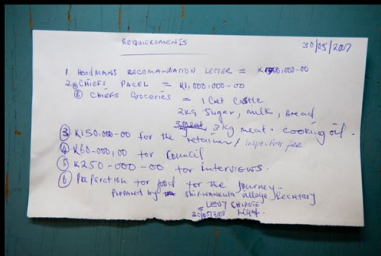 REQUIREMENTS
30/05/2017
1. HEADMANS RECOMANDATION LETTER = K150,000-00
2. CHIEFS PACEL = K1,000,000-00
CHIEFS Groceries = 1 Cat Castle
2kg Sugar, milk, bread
3kg meat. cooking oil.
3 K150.000-00 for the retainers/ inspection fee
4 K60-000,00 for council
5 K250-000-00 for interviews.
6 Preparation for food for the journey-
Prepared by village secretary
= LEVY
30/05/2017